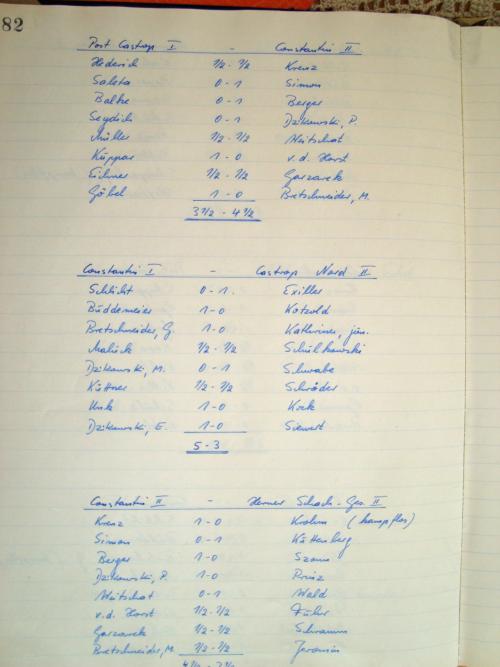 82
Post Castrop I. - Constantin II.
Hederich 1/2 - 1/2 Krenz
Saleta 0 - 1 Simon
Balke 0 - 1 Berger
Seydich 0 - 1 Dzikowski, P.
Müller 1/2 - 1/2 Nitschat
Küppar 1 - 0 v.d. Horst
Eichner 1/2 - 1/2 Garzarek
Göbel 1 - 0 Bretschneider, M.
3 1/2 - 4 1/2
Constantin I - Castrop Nord II
Schlicht 0 - 1. Exiller
Büddemeier 1 - 0 Kotzold
Bretschneider, G. 1 - 0 Kathriner, jun.
Malück 1/2 - 1/2 Schulkowski
Dzikowski, M. 0 - 1 Schwabe
Küttner 1/2 - 1/2 Schröder
1 - 0 Kock
Dzikowski, E. 1 - 0 Siewert
5 - 3
Constantin II - Herner Schach-Ges. II
Krenz 1 - 0 Krohm (kampflos)
Simon 0 - 1 Küttenberg
Berger 1 - 0
Dzikowski, P. 1 - 0 Prinz
Nitschat 0 - 1 Wald
v.d. Horst 1/2 - 1/2 Führ
Garzarek 1/2 - 1/2 Schramm
Bretschneider, M. 1/2 - 1/2 Jeromin